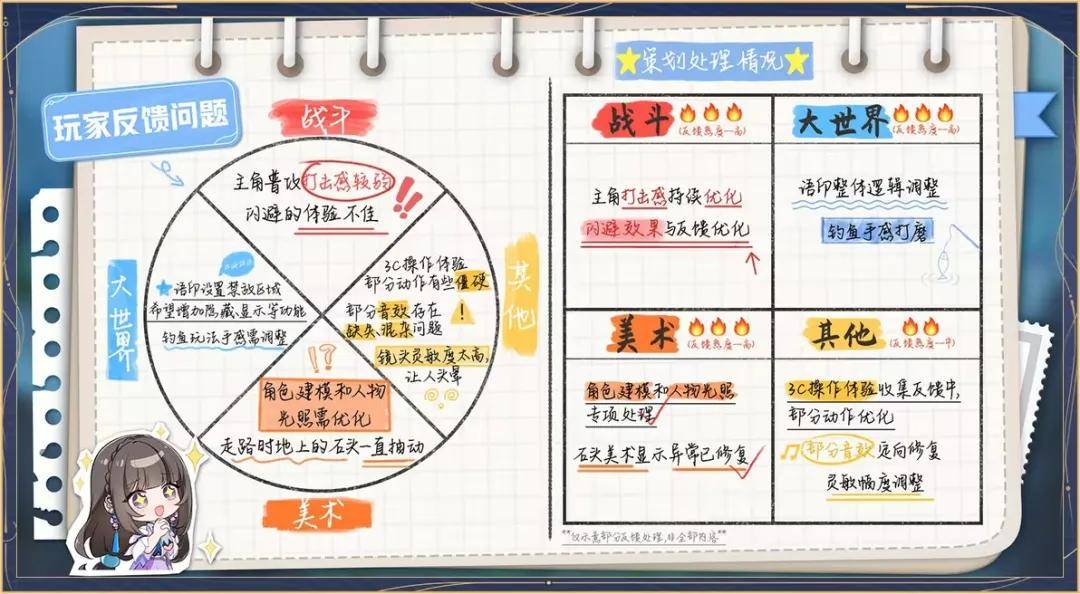 玩家反馈问题
战斗
主角普攻打击感较弱
闪避的体验不佳
大世界
语印设置禁放区域
希望增加隐藏显示等功能
钓鱼玩法手感需调整
其他
3C操作体验
部分动作有些僵硬
部分音效存在
缺失混杂问题
镜头灵敏度太高,
让人头晕
角色建模和人物
光照需优化
走路时地上的石头一直抽动
美术
策划处理情况
战斗
(反馈热度—高)
主角打击感持续优化
闪避效果与反馈优化
大世界
(反馈热度—高)
语印整体逻辑调整
钓鱼手感打磨
美术
(反馈热度—高)
角色建模和人物光照
专项处理
石头美术显示异常已修复
其他
(反馈热度—中)
3C操作体验收集反馈中,
部分动作优化
部分音效定向修复
灵敏幅度调整
**仅示意部分反馈处理,非全部内容**